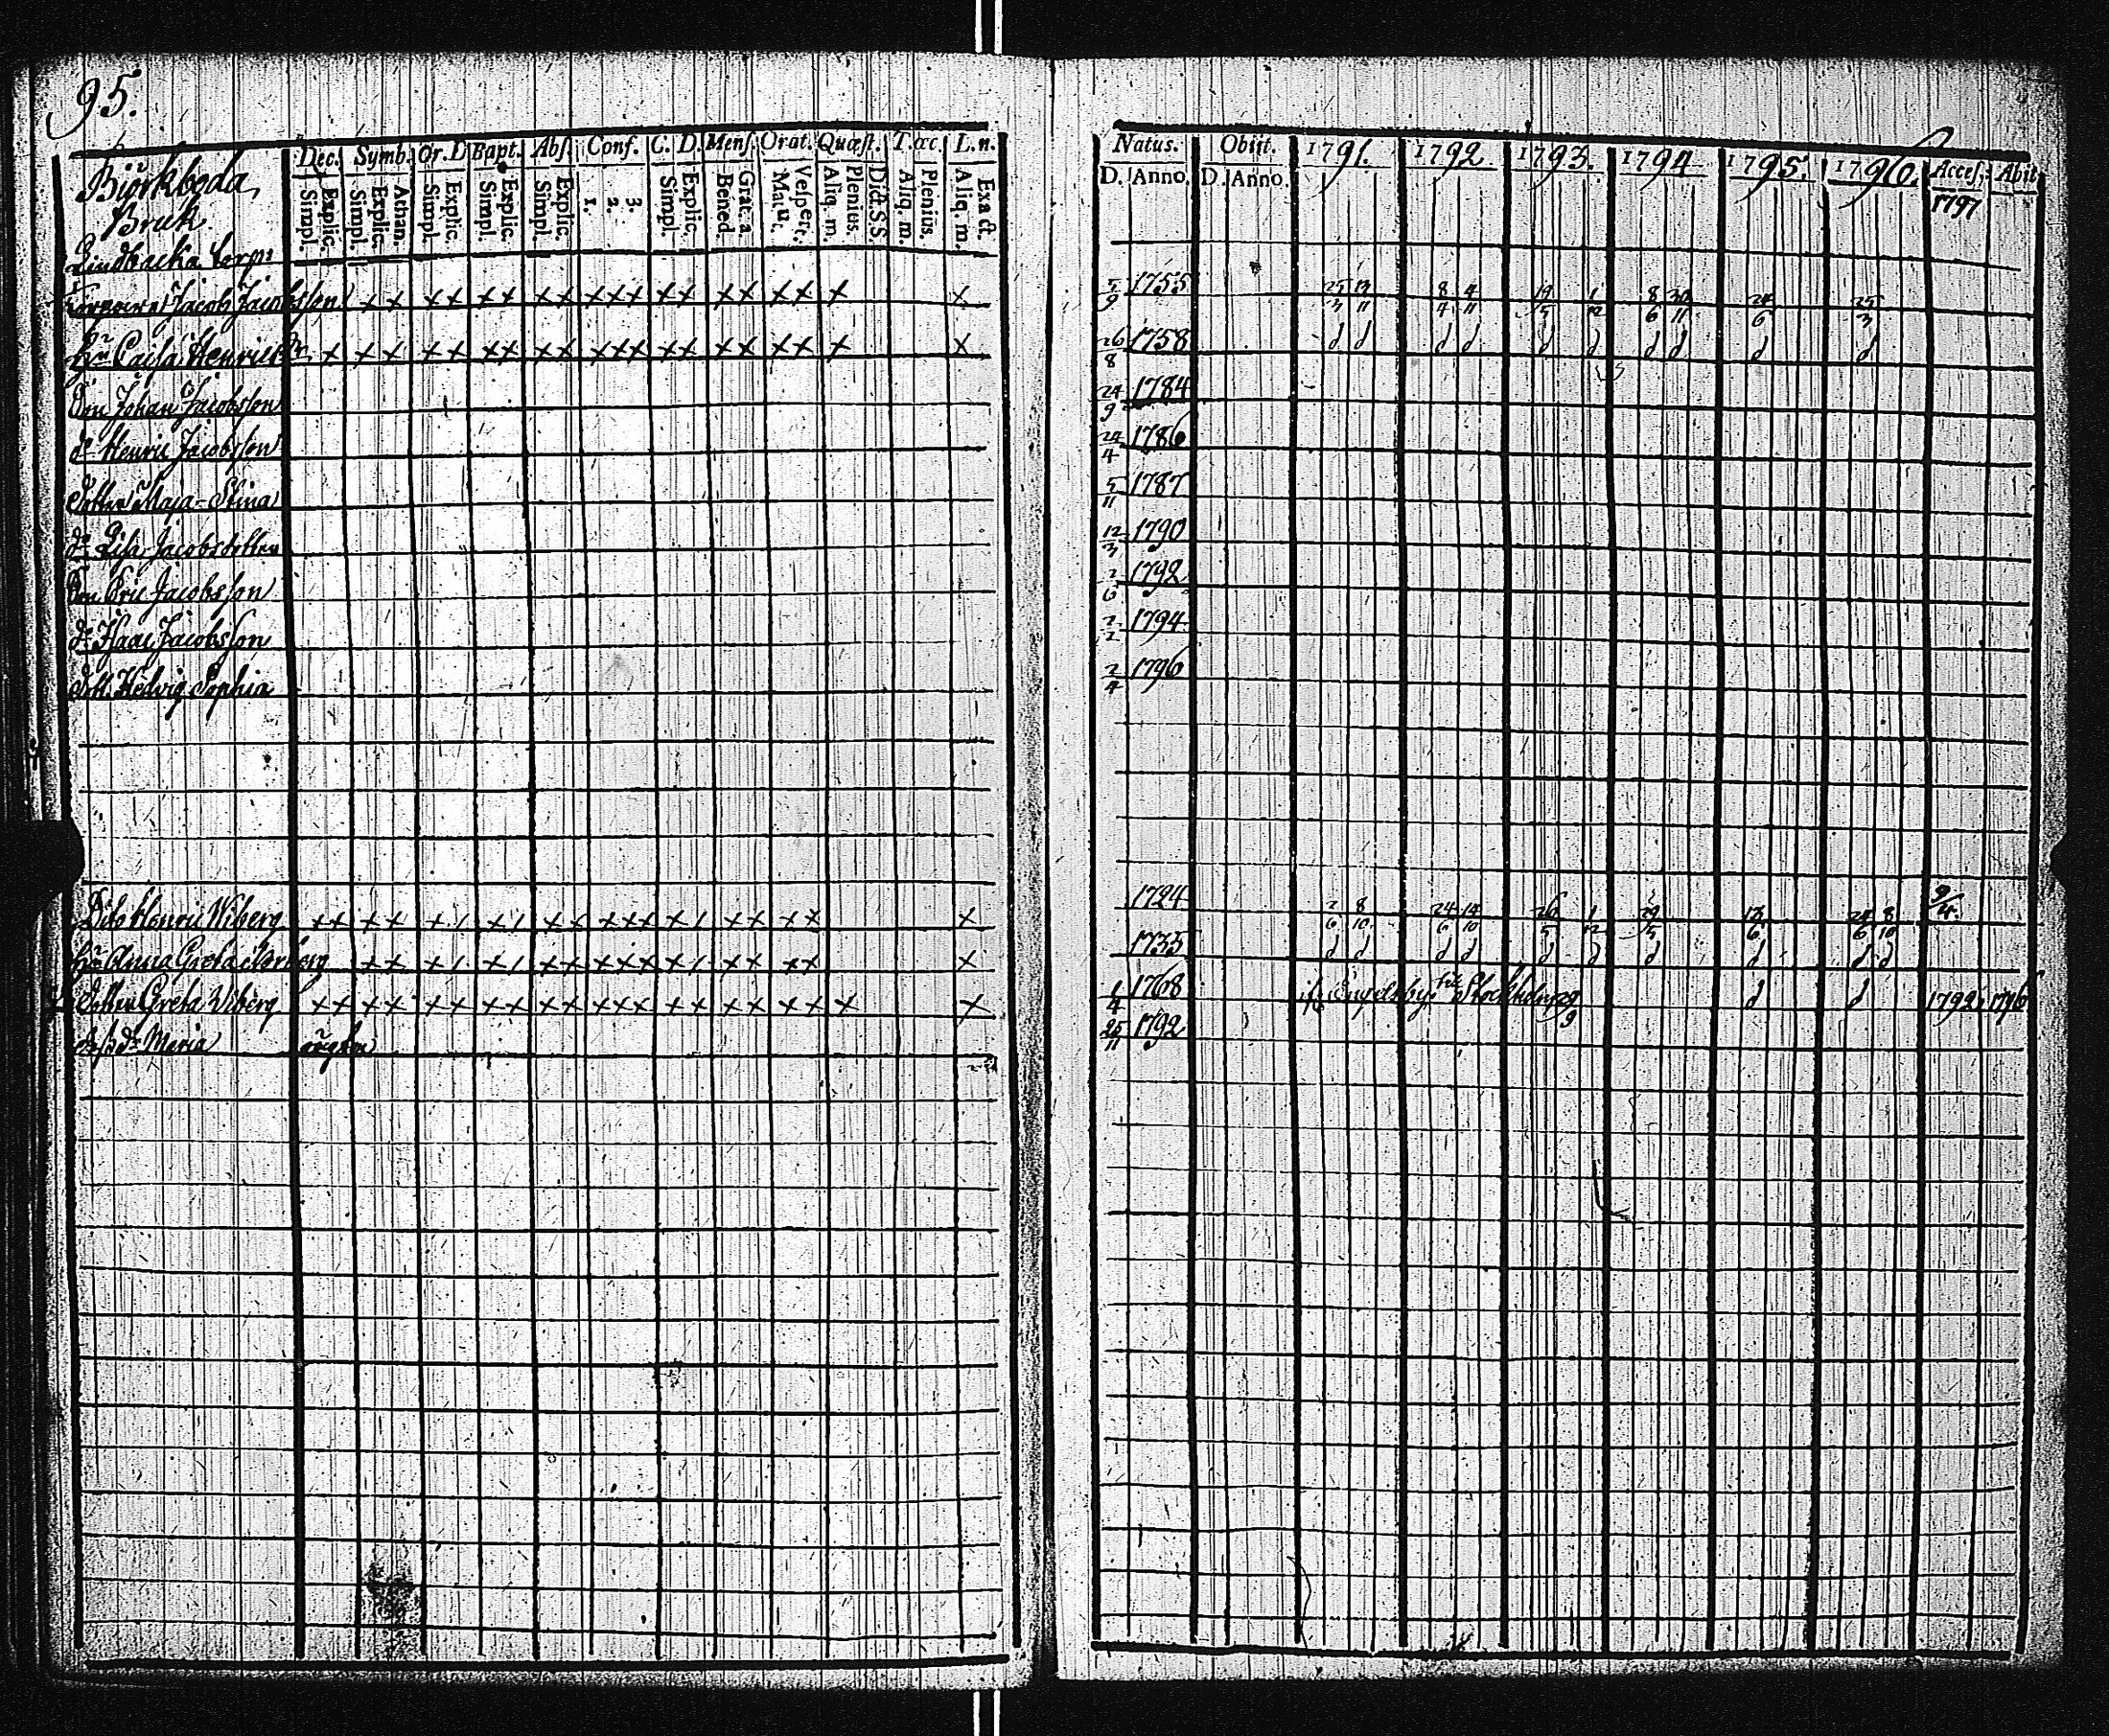 95.
Björkboda
Bruk.
Dec. Symb. Or. D Bapt. Abſ. Conf. C. D. Menſ. Orat. Quæſt. T. œc. L. n.
Simpl. Explic. Simpl. Explic. Athan. Simpl. Explic. Simpl. Explic. Simpl. Explic. 1. 2. 3. Simpl. Explic. Bened. Grat. a. Matut. Veſpert. Aliq. m. Plenius. Dict. S. S. Aliq. m. Plenius. Aliq. m. Exact.
Natus. Obiit. 1791. 1792. 1793. 1794 1795. 1796. Acceſ. Abit
D. Anno. D. Anno. 1797
Lindbacka torp
Jacob Jacobsson x x x x x x x x x x x x x x x x x x x 5/9 1755 25/3 13/11 8/4 4/11 19/5 1/12 8/6 30/11 24/6 25/3
hu Caisa Henrics dr x x x x x x x x x x x x x x x x x x x x 26/8 1758 d d d d d d d d d d
Son Johan Jacobsson 24/9 1784
do Henric Jacobsson 24/4 1786
Dotter Maja-Stina 5/11 1787
do Lisa Jacobsdotter 12/3 1790
Son Eric Jacobsson 2/6 1792
do Isaac Jacobsson 2/2 1794
Dott. Hedvig Sophia 2/4 1796
Dito Henric Wiberg x x x x x / x / x x x x x x / x x x x x 1724 2/6 8/10 24/6 14/10 26/5 1/12 29/5 18/6 24/6 8/10 9/4.
hu Anna Greta x x x / x / x x x x x x / x x x x x 1735 d d d d d d d d d d
Dotter Greta Wiberg x x x x x x x x x x x x x x x x x x x x 1/4 1768 Stockholm 29/9 d d 1792 1796
dess dr Maria 25/11 1792